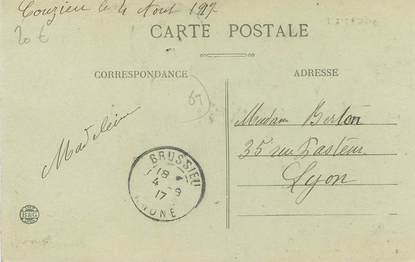 Couzieu le 4 Aout 1917
20 €
CARTE POSTALE
CORRESPONDANCE
ADRESSE
67
Madeleine
Madame Berton
35 rue Pasteur
Lyon
BRUSSIEU
18
4 - 9
17
RHONE